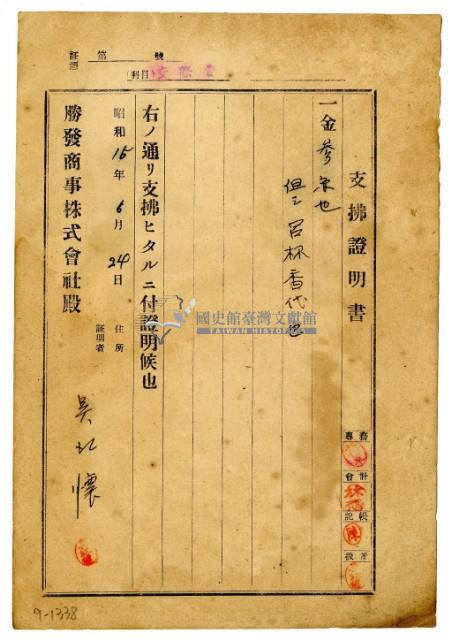 支拂證明書
一金參円也
但シ呂杯香代也
右ノ通リ支拂ヒタルニ付證明候也
昭和15年6月24日
住所
証明者
吳
懷
勝發商事株式會社殿
証憑 第 號
科目 交際費
專務
會計
記帳
國史館臺灣文獻館
TAIWAN HISTORICA
9-1338